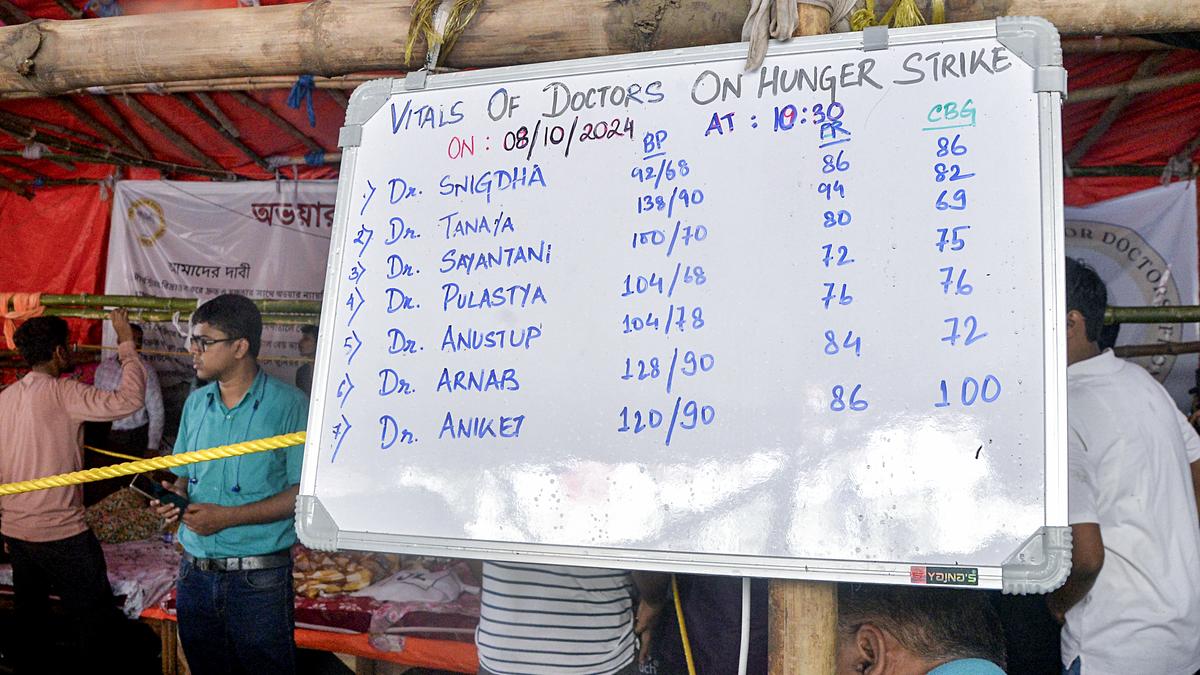 VITALS OF DOCTORS ON HUNGER STRIKE
ON : 08/10/2024 AT : 10:30
BP PR CBG
1) Dr. SNIGDHA 92/68 86 86
2) Dr. TANAYA 138/90 94 82
3) Dr. SAYANTANI 100/70 80 69
4) Dr. PULASTYA 104/68 72 75
5) Dr. ANUSTUP 104/78 76 76
6) Dr. ARNAB 128/90 84 72
7) Dr. ANIKET 120/90 86 100
YAJNA'S
অভয়ার
আমাদের দাবী
OR DOCTORS